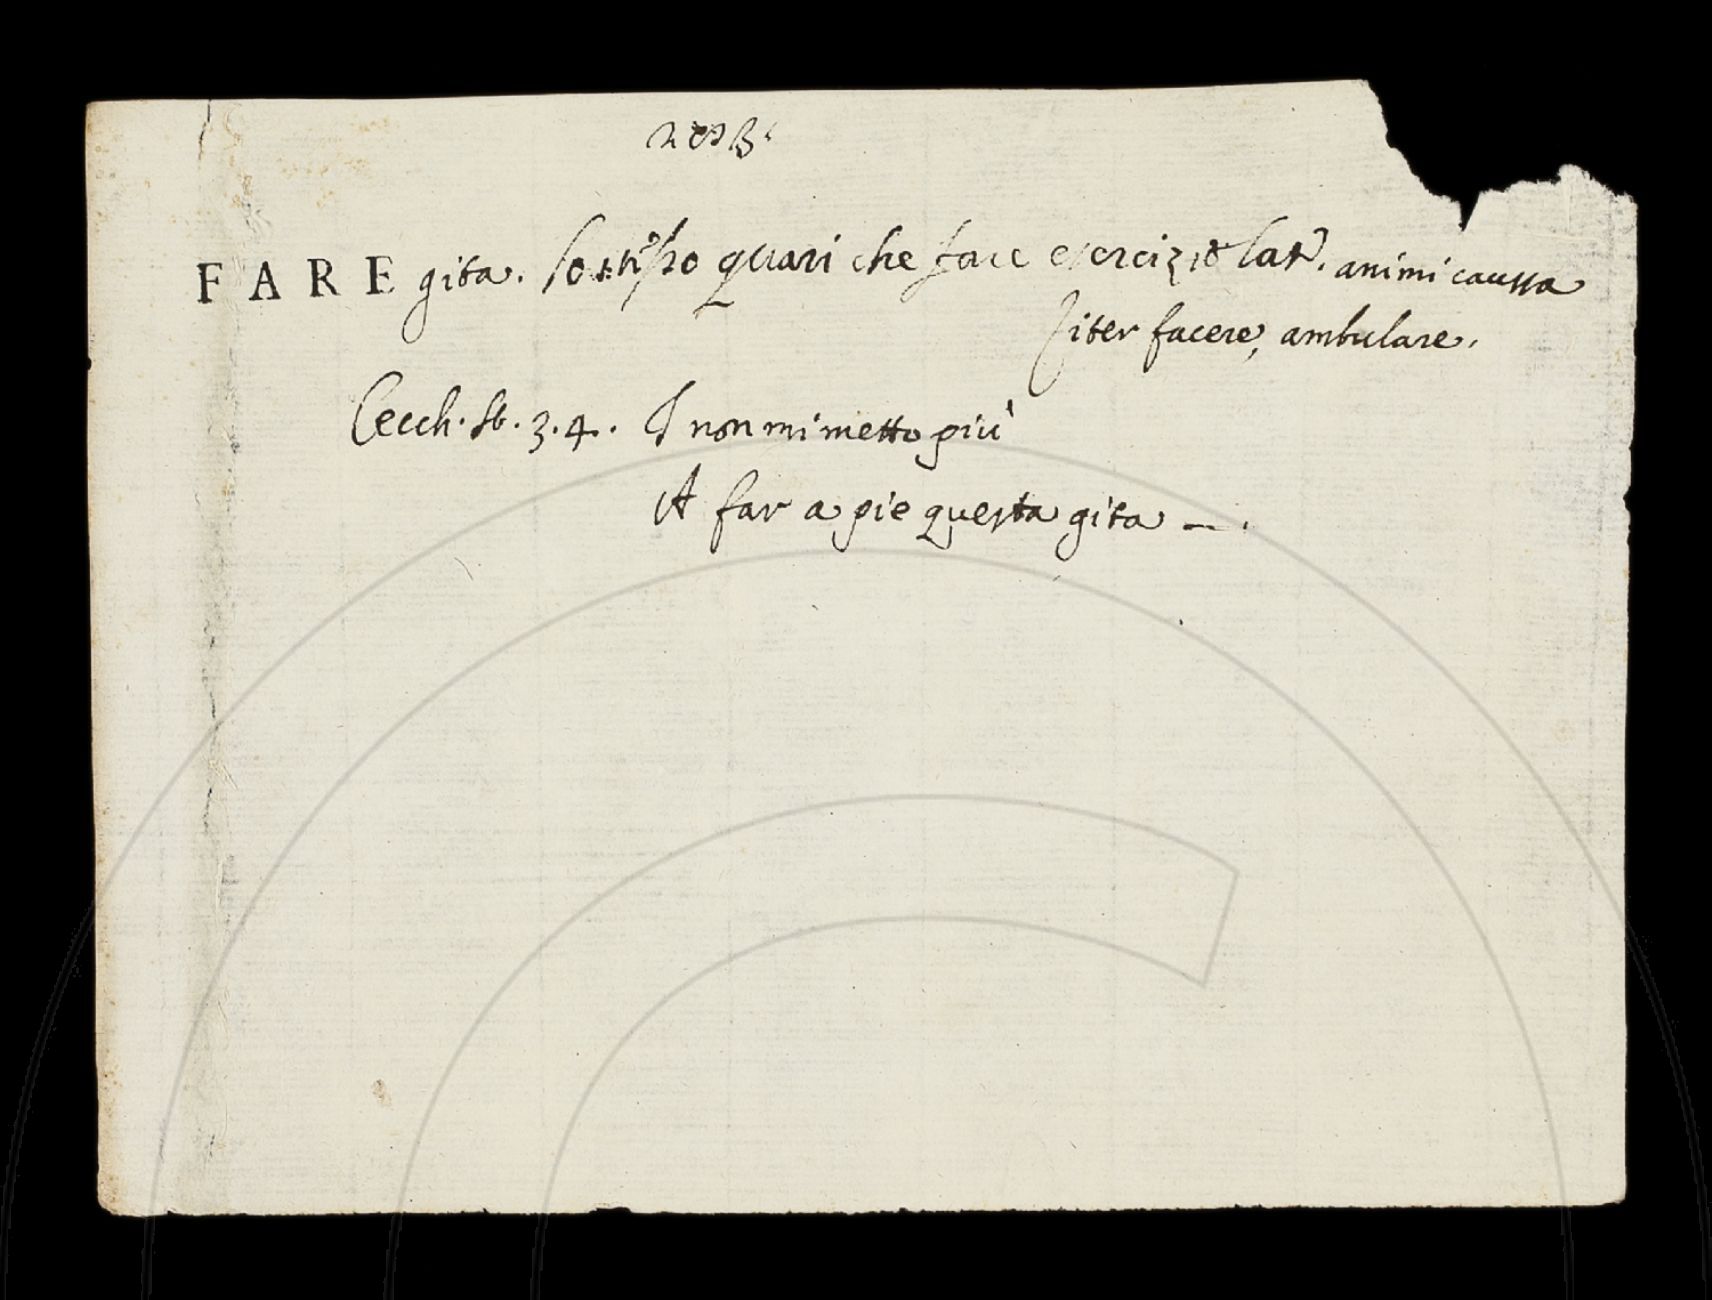 FARE gita. Lo stesso quasi che fare esercizio Lat. animi caussa
iter facere, ambulare.
Cecch. St. 3. 4. I non mi metto più
A far a pie questa gita —.